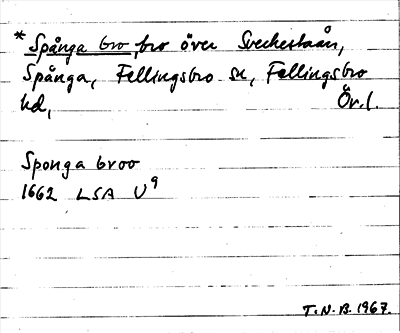 * Spånga bro, bro över Sverkestaån,
Spånga, Fellingsbro sn, Fellingsbro
hd, Ör. l.
Sponga broo
1662 LSA U9
T.N.B. 1967.